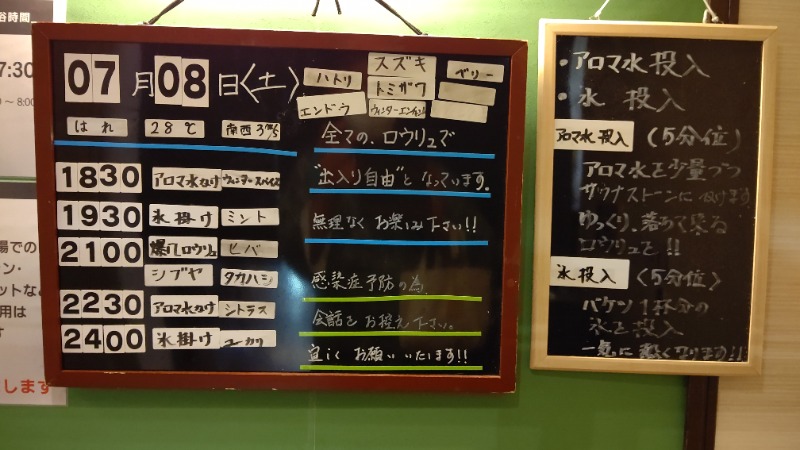 谷時間
7:30
~8:00
場での
ン・
ットな
用は
す
します
07月08日〈土〉
スズキ
ハトリ トミザワ ベリー
エンドウ
はれ 28℃ 南西3m/s
1830 アロマ水かけ ウィンタースパイス
1930 氷掛け ミント
2100 爆汗ロウリュ ヒバ
シブヤ タカハシ
2230 アロマ水かけ シトラス
2400 氷掛け ユーカリ
全ての、ロウリュで
"出入り自由"となっています。
無理なくお楽しみ下さい!!
感染症予防の為、
会話をお控え下さい。
宜しくお願いいたします!!
・アロマ水投入
・氷 投入
アロマ水投入 (5分位)
アロマ水を少量づつ
サウナストーンに かけます
ゆっくり、落ちて来る
ロウリュを!!
氷投入 〈5分位〉
バケツ1杯分の
氷を投入
一気に 熱くなります!!